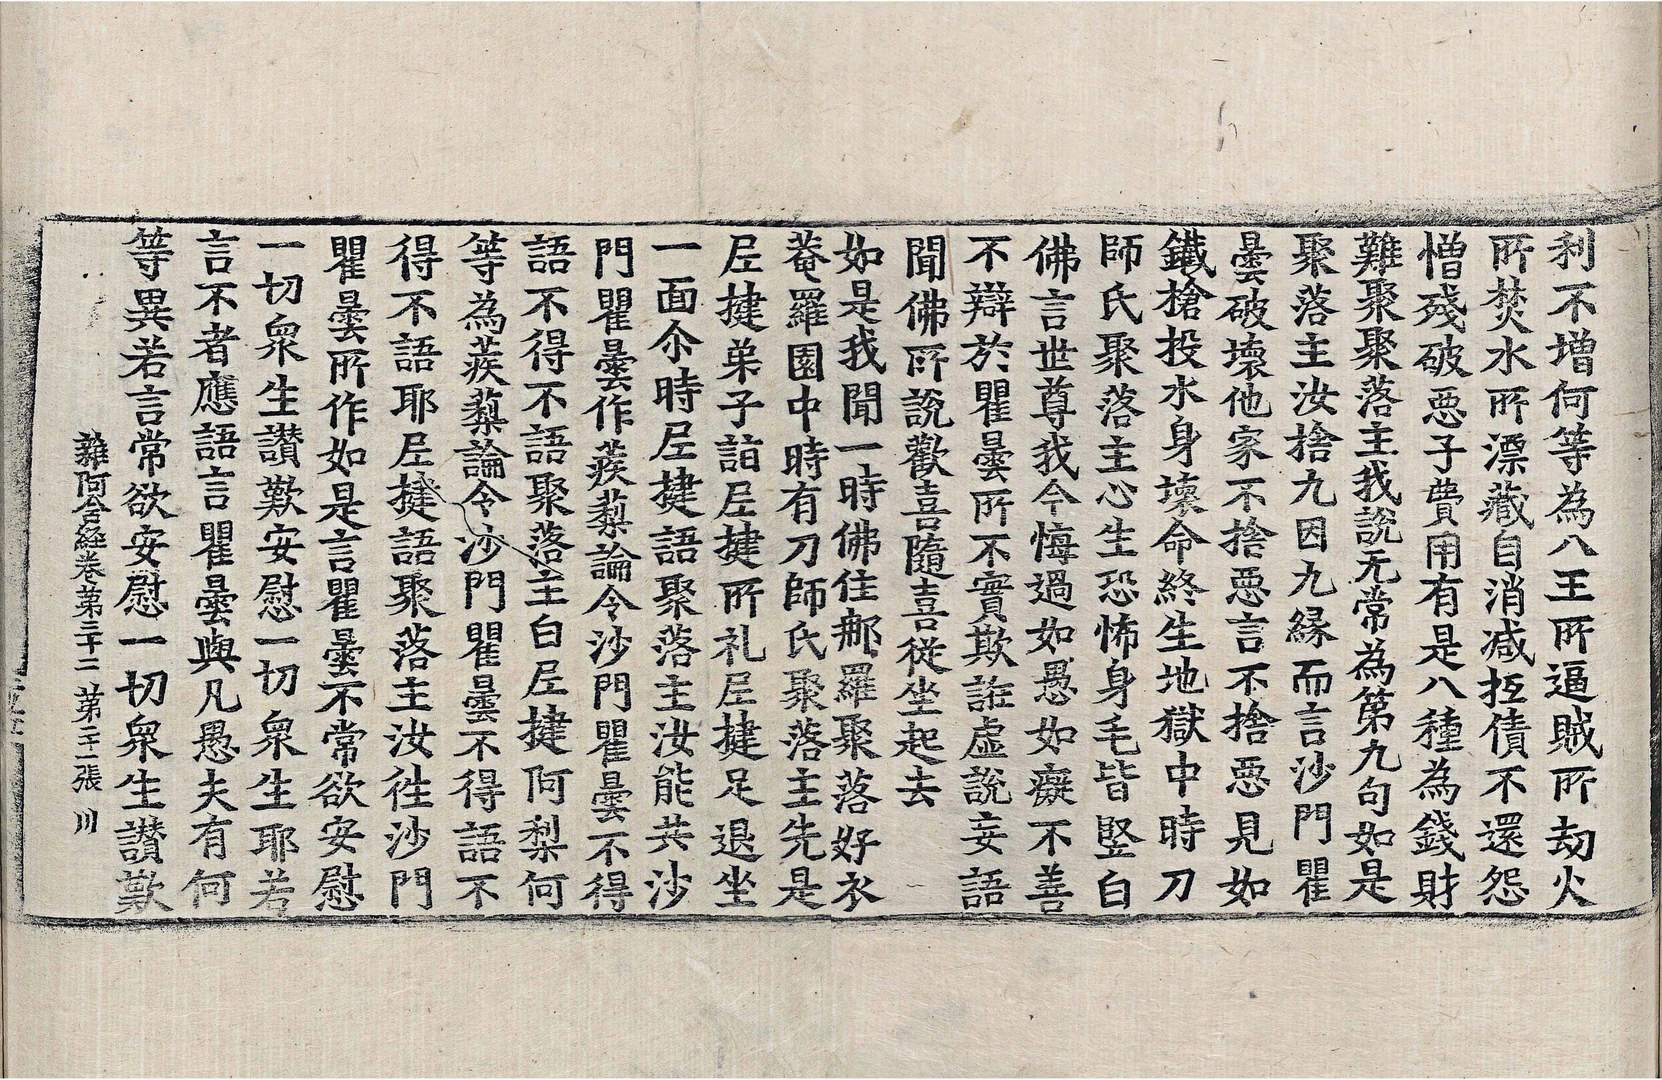 利不增何等為八王所逼賊所劫火
所焚水所漂藏自消減抵債不還怨
憎殘破惡子費用有是八種為錢財
難聚聚落主我說无常為第九句如是
聚落主汝捨九因九緣而言沙門瞿
曇破壞他家不捨惡言不捨惡見如
鐵槍投水身壞命終生地獄中時刀
師氏聚落主心生恐怖身毛皆竪白
佛言世尊我今悔過如愚如癡不善
不辯於瞿曇所不實欺誑虛說妄語
聞佛所說歡喜隨喜從坐起去
如是我聞一時佛住那羅聚落好衣
菴羅園中時有刀師氏聚落主先是
尼揵弟子詣尼揵所礼尼揵足退坐
一面尒時尼揵語聚落主汝能共沙
門瞿曇作蒺䔧論令沙門瞿曇不得
語不得不語聚落主白尼揵阿梨何
等為蒺䔧論令沙門瞿曇不得語不
得不語耶尼揵語聚落主汝往沙門
瞿曇所作如是言瞿曇不常欲安慰
一切衆生讃歎安慰一切衆生耶若
言不者應語言瞿曇與凡愚夫有何
等異若言常欲安慰一切衆生讃歎
雜阿含経卷第三十二 第二十一張 川